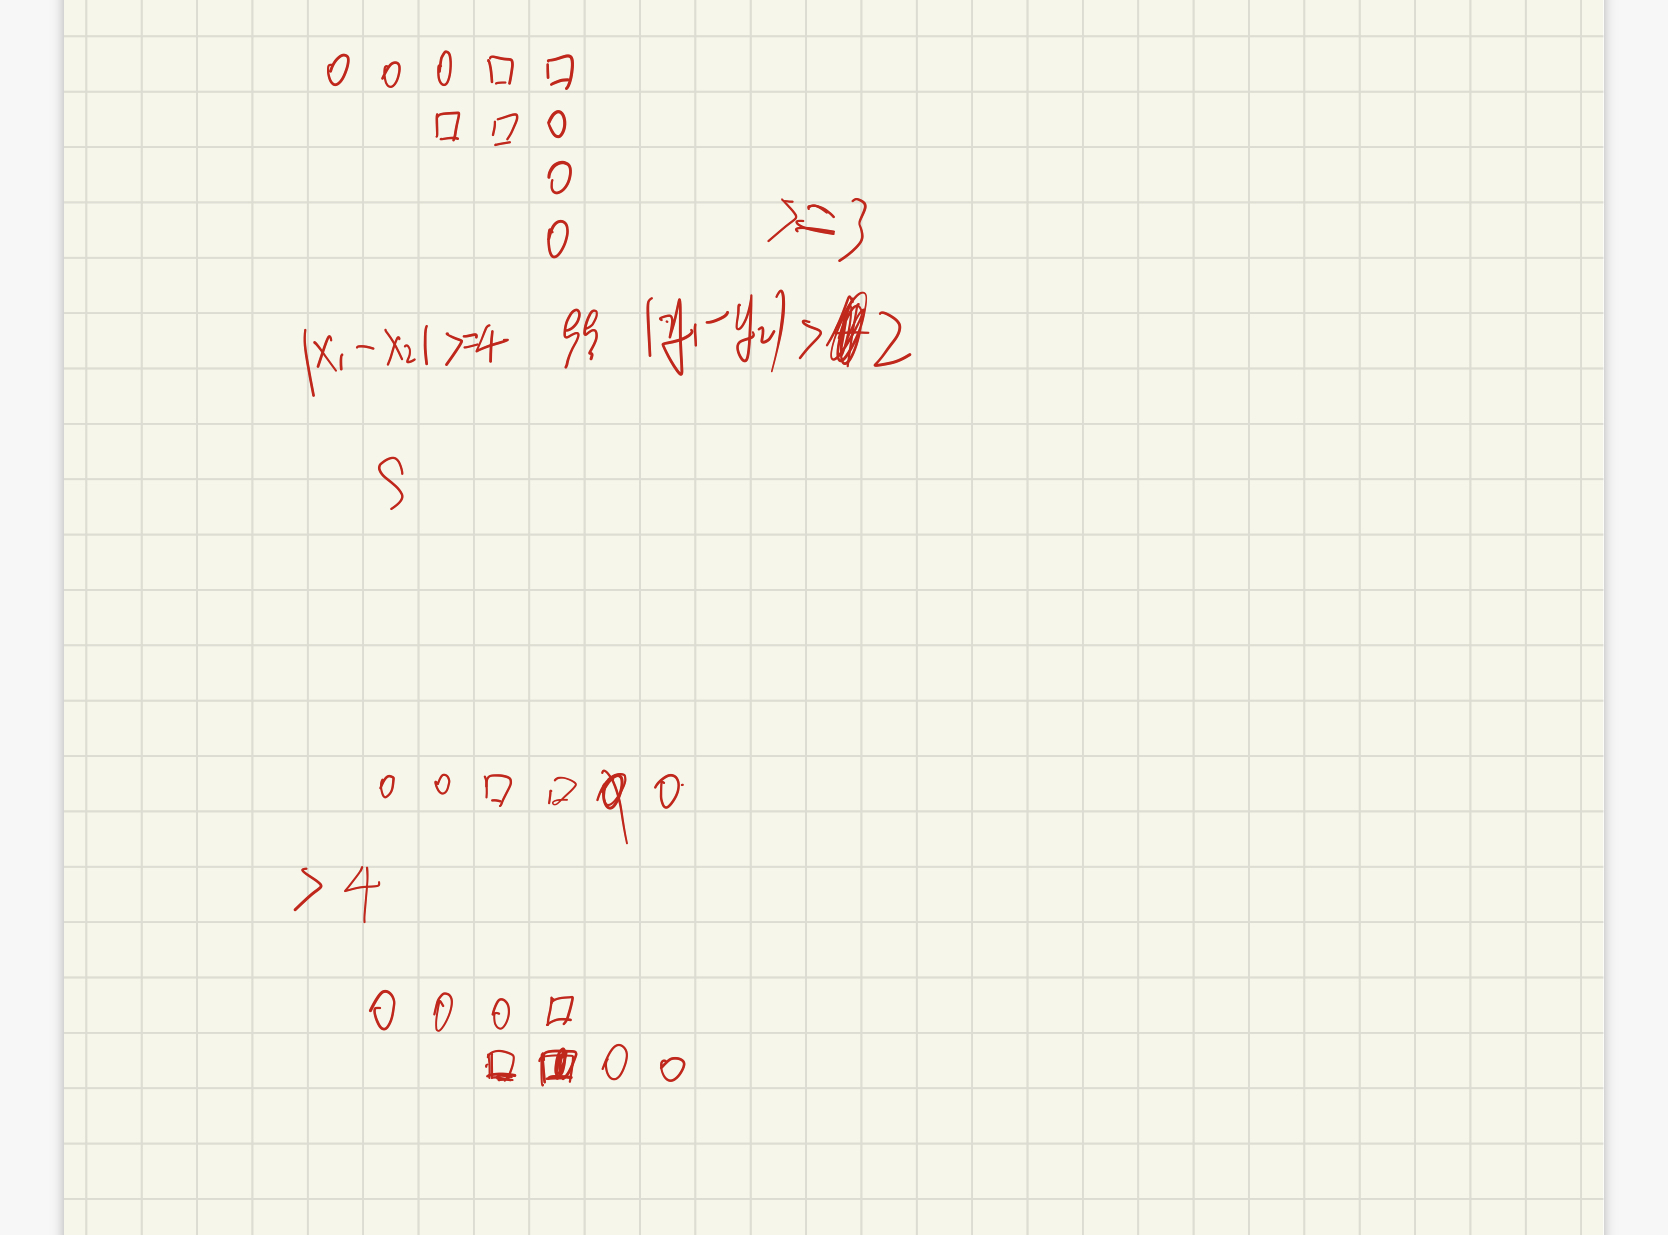 0 0 0 □ □
□ □ 0
0
0
>= 3
|x₁ - x₂| >= 4 && |y₁ - y₂| > 2
S
0 0 □ □ 0
> 4
0 0 0 □
□ □ 0 0